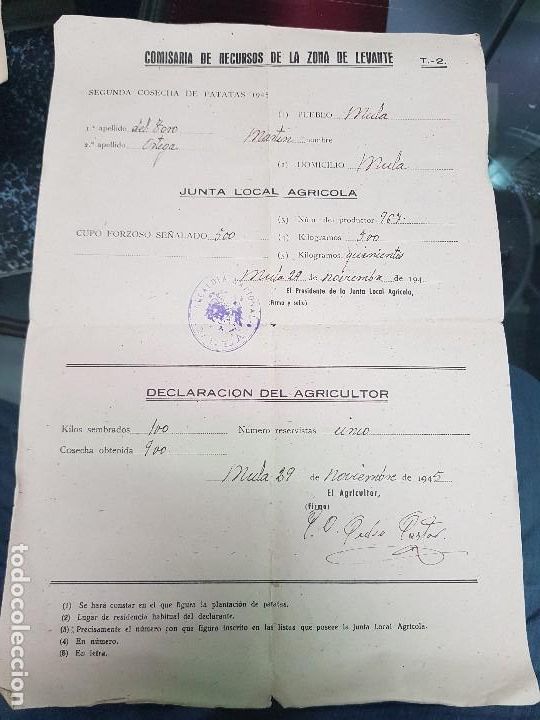 COMISARIA DE RECURSOS DE LA ZONA DE LEVANTE T.-2.
SEGUNDA COSECHA DE PATATAS 1945
(1) PUEBLO Mula
1.º apellido del Toro
Martín nombre
2.º apellido Ortega
(2) DOMICILIO Mula
JUNTA LOCAL AGRICOLA
(3) Núm. del productor 967
CUPO FORZOSO SEÑALADO 500 (4) Kilogramos 500
(5) Kilogramos quinientos
Mula 29 de noviembre de 194
El Presidente de la Junta Local Agrícola,
(Firma y sello)
DECLARACION DEL AGRICULTOR
Kilos sembrados 100 Número reservistas
Cosecha obtenida 900
Mula 29 de Noviembre de 1945
El Agricultor,
(Firma)
P. O. Pedro Pastor
(1) Se hará constar en el que figura la plantación de patatas.
(2) Lugar de residencia habitual del declarante.
(3) Precisamente el número con que figura inscrito en las listas que posere la Junta Local Agrícola.
(4) En número.
(5) En letra.
todocoleccion